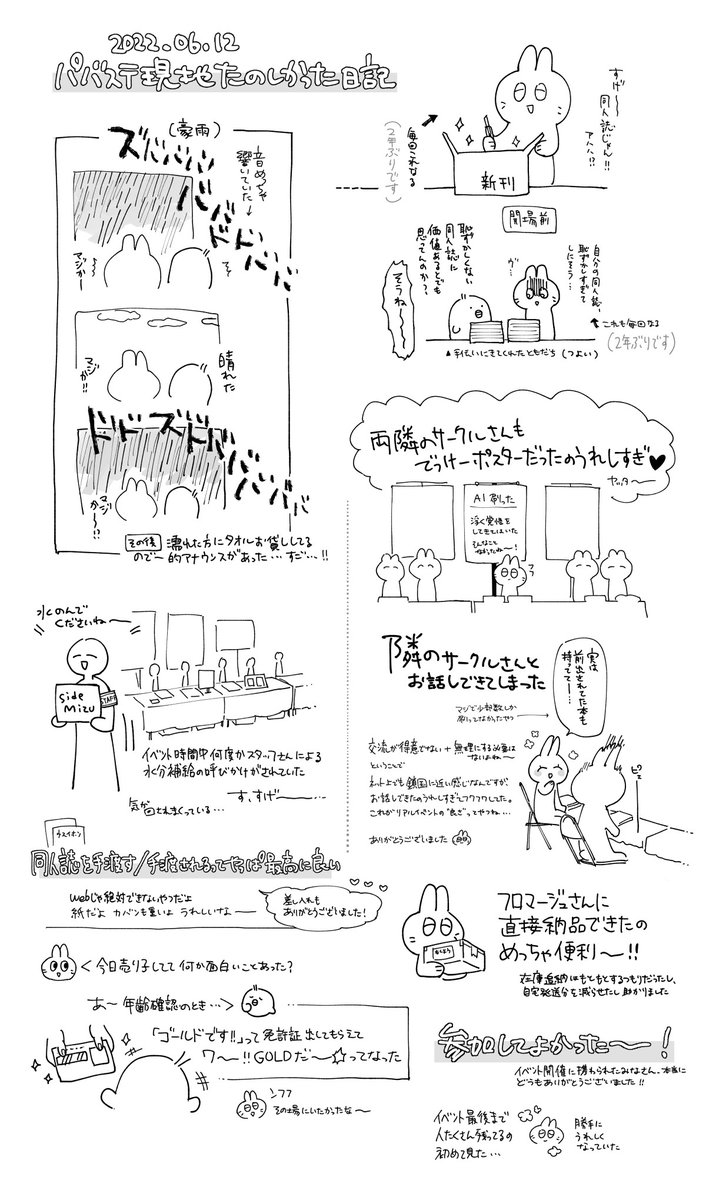 2022.06.12
パバステ現地たのしかった日記
すげ〜〜
同人誌じゃん!!
アハハ!?
新刊
毎回これなる
(2年ぶりです)
開場前
自分の同人誌、
恥ずかしすぎて
しにそう…
ヴ…
恥ずかしくない
同人誌に
価値あるとでも
思ってんのか?
そうね〜〜
これも毎回なる
(2年ぶりです)
▲手伝いにきてくれたともだち(つよい)
(豪雨)
音めっちゃ
響いていた
ズババババババドドババ
マジかー
晴れた
マジか!!
ドドズドババババババ
マジかー!?
その後
濡れた方にタオルお貸ししてる
ので〜的アナウンスがあった…すご…!!
両隣のサークルさんも
でっけーポスターだったのうれしすぎ♥
ヤッタ〜
AI刷った
浮く覚悟を
してきてはいた
そんなこと
なかったね〜!
水のんで
くださいね〜
side
Mizu
STAFF
イベント時間中何度かスタッフさんによる
水分補給の呼びかけがされていた
す、すげ〜
気が回されまくっている…
隣のサークルさんと
お話しできてしまった
実は
前出されてた本も
持ってて…
マジで少部数しか
刷ってなかったやつ
交流が得意でない+無理にする必要は
ないよね〜
ということで
ネット上でも鎖国に近い感じなんですが
お話しできたのうれしすぎてフワフワしてた。
これがリアルイベントの"良さ"ってやつね…
ありがとうございました
ウスイホン
同人誌を手渡す/手渡されるってやっぱ最高に良い
webじゃ絶対できないやつだよ
紙だよ カバンも重いよ うれしいな〜
差し入れも
ありがとうございました!
今日売り子してて何か面白いことあった?
あ〜年齢確認のとき…
「ゴールドです!!」って免許証出してもらえて
ワ〜!!GOLDだ〜☆ってなった
ンフフ
その場にいたかったな〜
フロマージュさんに
直接納品できたの
めっちゃ便利〜!!
在庫返納はもともとするつもりだったし、
自宅発送分を減らせたし助かりました
参加してよかった〜!
イベント開催に携わられたみなさん、本当に
どうもありがとうございました!!
イベント最後まで
人たくさん残ってるの
初めて見た…
勝手に
うれしく
なっていた